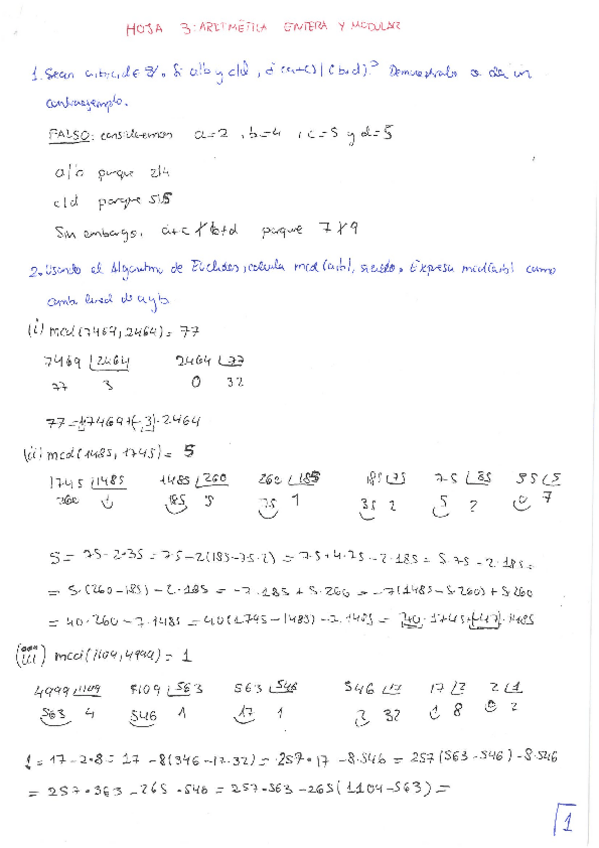 HOJA 3: ARITMÉTICA ENTERA Y MODULAR
1. Sean a,b,c,d ∈ Z. Si a|b y c|d, ¿(a+c)|(b+d)? Demuéstralo o da un
contraejemplo.
FALSO: consideremos a=2, b=4, c=5 y d=5
a|b porque 2|4
c|d porque 5|5
Sin embargo, a+c ∤ b+d porque 7 ∤ 9
2. Usando el Algoritmo de Euclides, calcula mcd(a,b), siendo. Expresa mcd(a,b) como
comb. lineal de a y b.
(i) mcd(7469, 2464) = 77
7469 | 2464 2464 | 77
77 3 0 32
77 = 1·7469 + (-3)·2464
(ii) mcd(1485, 1745) = 5
1745 | 1485 1485 | 260 260 | 185 185 | 75 75 | 35 35 | 5
260 1 185 5 75 1 35 2 5 2 0 7
5 = 75 - 2·35 = 75 - 2(185 - 75·2) = 75 + 4·75 - 2·185 = 5·75 - 2·185 =
= 5·(260 - 185) - 2·185 = -7·185 + 5·260 = -7(1485 - 5·260) + 5·260
= 40·260 - 7·1485 = 40(1745 - 1485) - 7·1485 = 40·1745 + (-47)·1485
(iii) mcd(1109, 4999) = 1
4999 | 1109 1109 | 563 563 | 546 546 | 17 17 | 2 2 | 1
563 4 546 1 17 1 2 32 1 8 0 2
1 = 17 - 2·8 = 17 - 8(546 - 17·32) = 257·17 - 8·546 = 257(563 - 546) - 8·546
= 257·563 - 265·546 = 257·563 - 265(1109 - 563) =
1